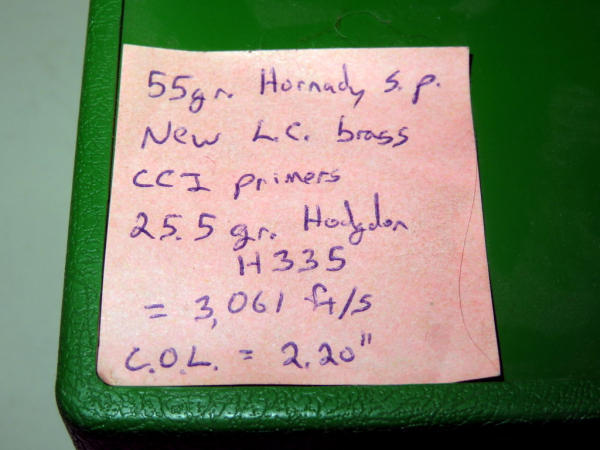 55gr. Hornady s.p.
New L.C. brass
CCI primers
25.5 gr. Hodgdon
H335
= 3,061 ft/s
C.O.L. = 2.20"